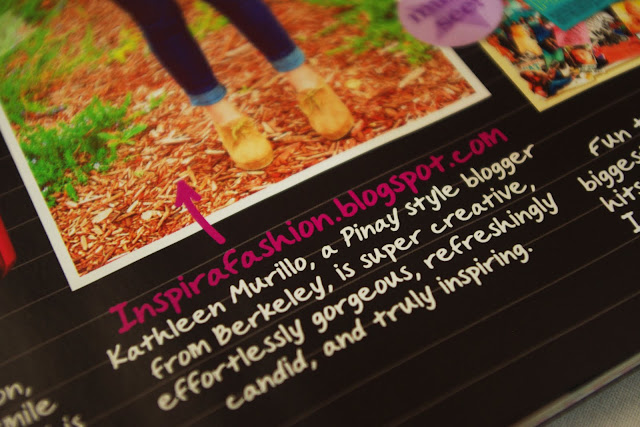 must
see!
Inspirafashion.blogspot.com
Kathleen Murillo, a Pinay style blogger
from Berkeley, is super creative,
effortlessly gorgeous, refreshingly
candid, and truly inspiring.
Fun
bigges
hit
I
on,
mile
is